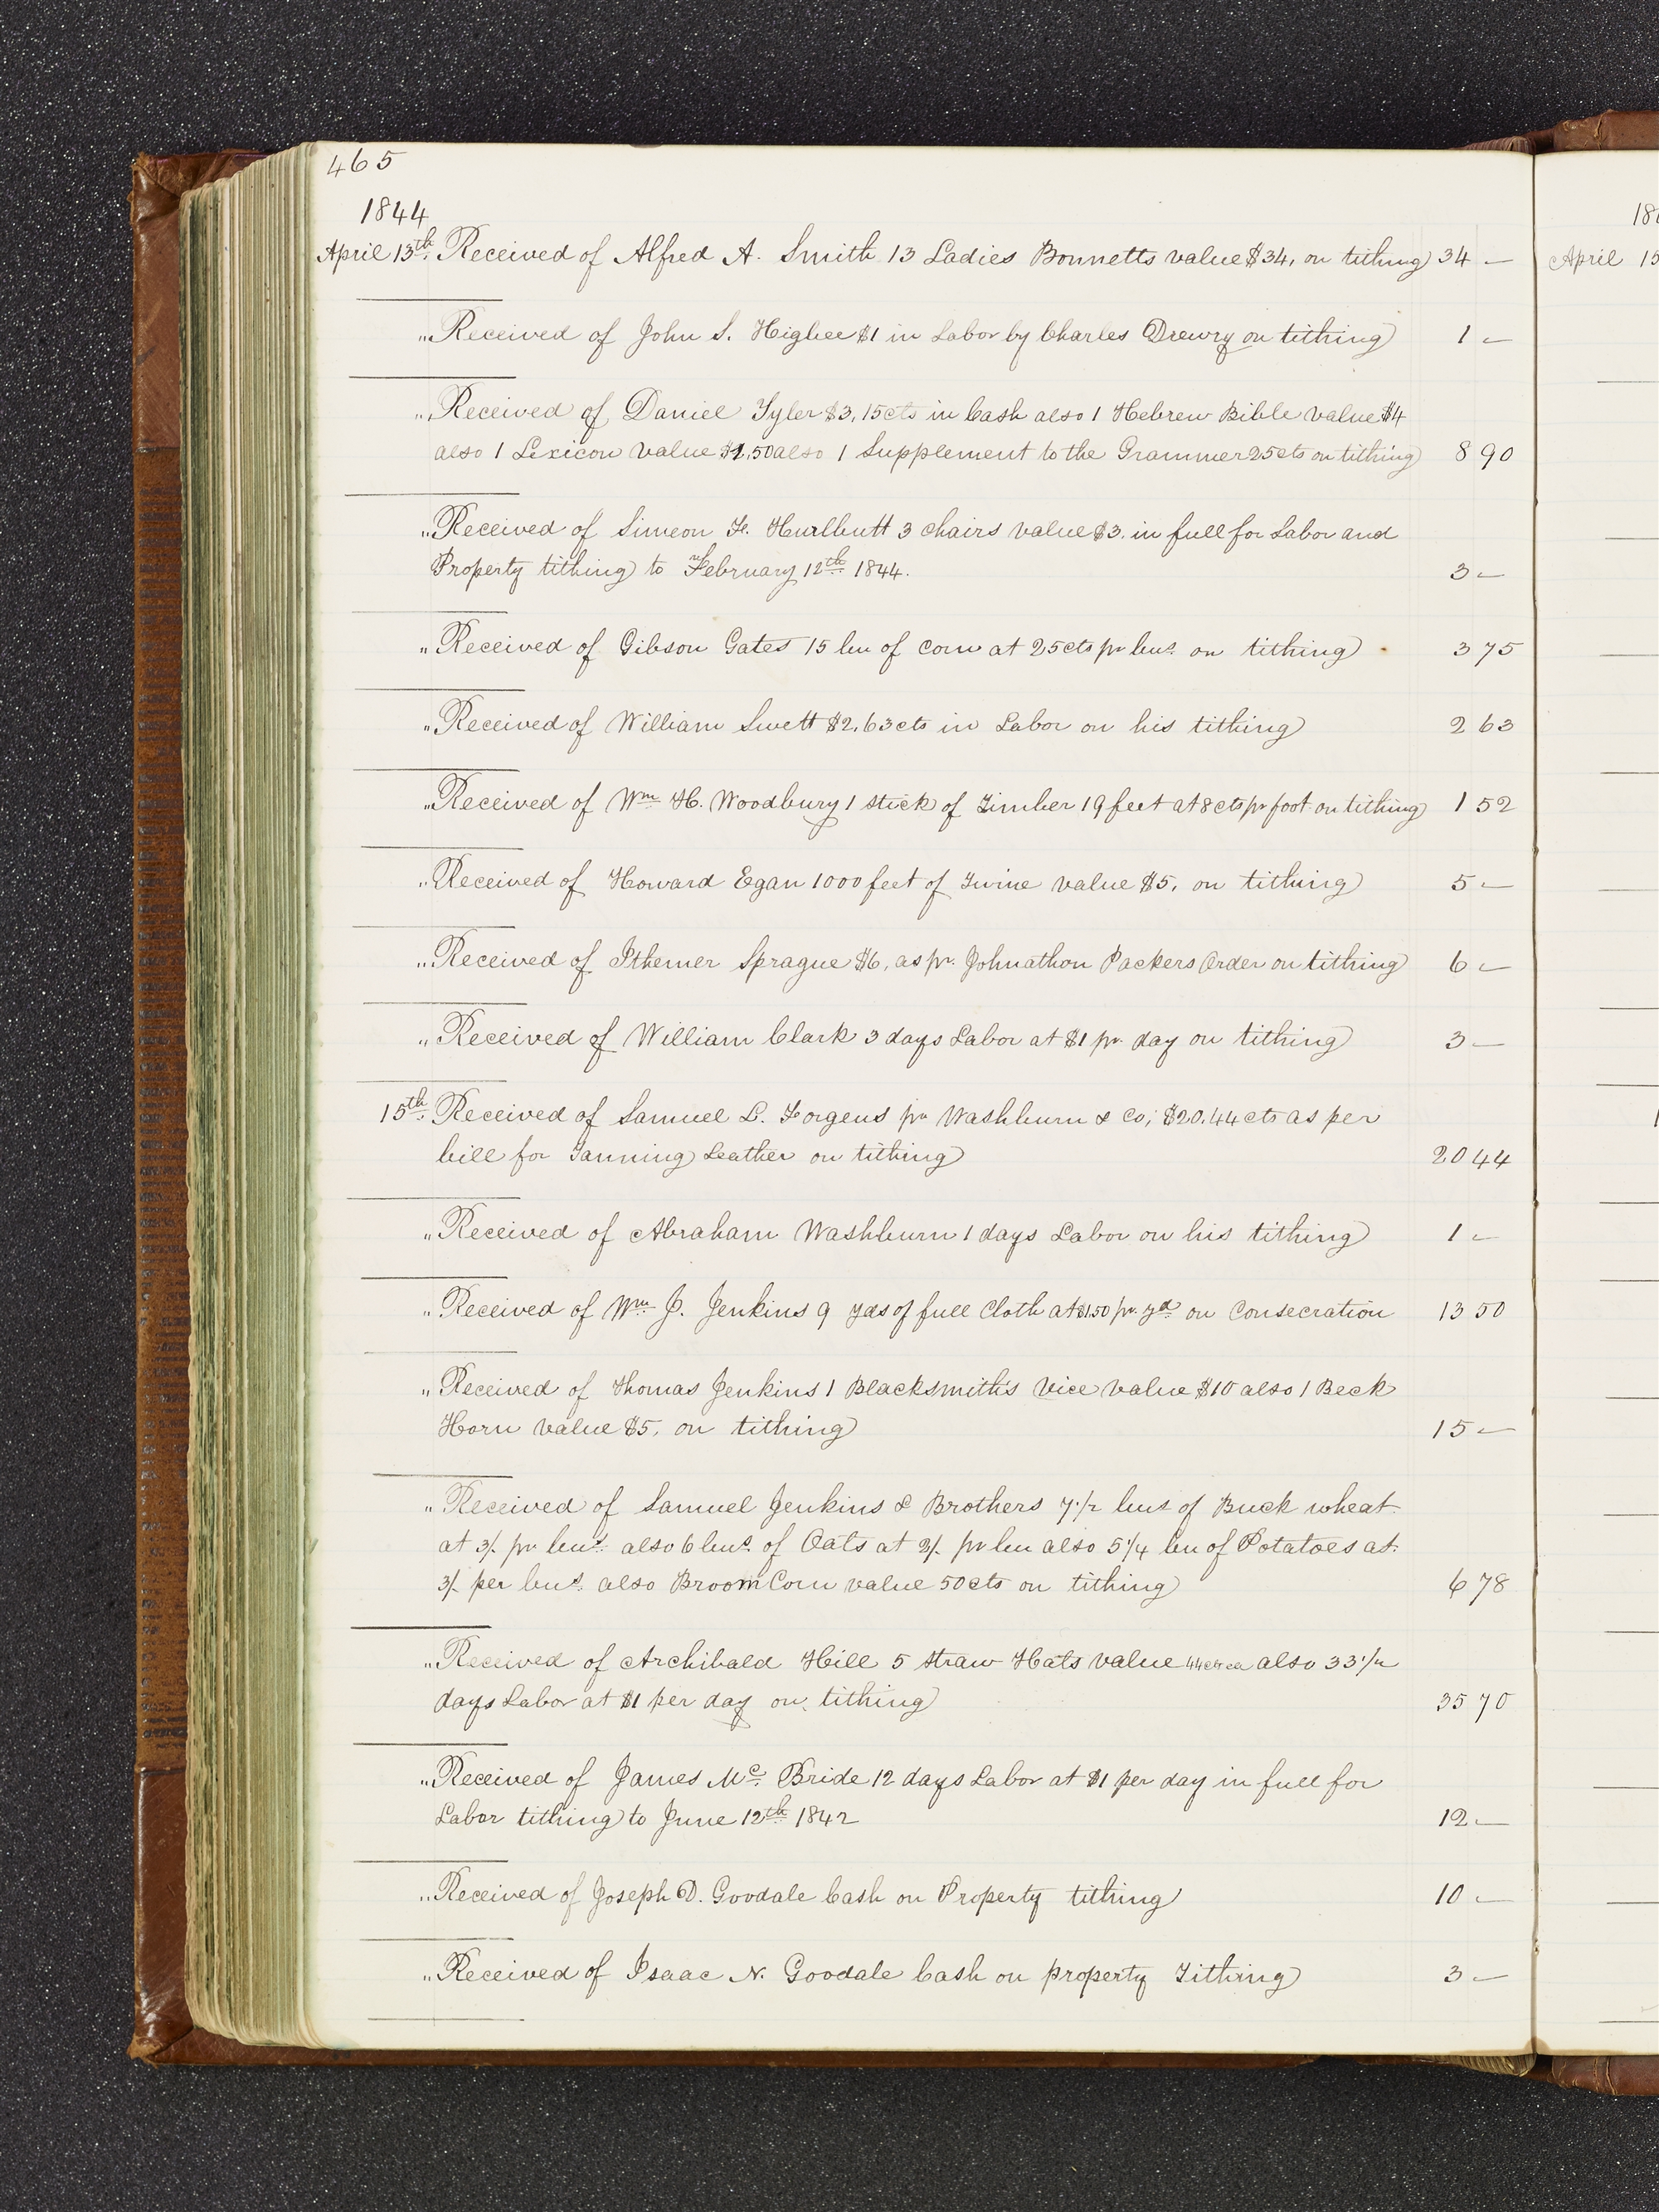 465
1844
April 13th. Received of Alfred A. Smith 13 Ladies Bonnetts value $34, on tithing 34 —
" Received of John S. Higbee $1 in Labor by Charles Drewry on tithing 1 —
" Received of Daniel Tyler $3,15cts in Cash also 1 Hebrew Bible value $4
also 1 Lexicon value $1,50 also 1 Supplement to the Grammer 25cts on tithing 8 90
" Received of Simeon F. Hurlbutt 3 chairs value $3, in full for Labor and
Property tithing to February 12th 1844. 3 —
" Received of Gibson Gates 15 bu of corn at 25cts pr bus. on tithing 3 75
" Received of William Swett $2,63cts in Labor on his tithing 2 63
" Received of Wm H. Woodbury 1 stick of Timber 19 feet at 8cts pr foot on tithing 1 52
" Received of Howard Egan 1000 feet of Twine value $5, on tithing 5 —
" Received of Ithemer Sprague $6, as pr. Johnathon Packers Order on tithing 6 —
" Received of William Clark 3 days Labor at $1 pr. day on tithing 3 —
15th. Received of Samuel L. Forgeus pr Washburn & Co; $20,44cts as per
bill for Tanning Leather on tithing 20 44
" Received of Abraham Washburn 1 days Labor on his tithing 1 —
" Received of Wm J. Jenkins 9 yds of full Cloth at $1.50 pr. yd on Consecration 13 50
" Received of Thomas Jenkins 1 Blacksmiths Vice value $10 also 1 Beck
Horn value $5, on tithing 15 —
" Received of Samuel Jenkins & Brothers 7 1/2 bus of Buck wheat
at 3/. pr bus. also 6 bus. of Oats at 2/. pr bu also 5 1/4 bu of Potatoes at
3/. per bus. also Broom Corn value 50cts on tithing 6 78
" Received of Archibald Hill 5 straw Hats value 44cts ea also 33 1/2
days Labor at $1 per day on tithing 35 70
" Received of James Mc. Bride 12 days Labor at $1 per day in full for
Labor tithing to June 12th 1842 12 —
" Received of Joseph D. Goodale Cash on Property tithing 10 —
" Received of Isaac N. Goodale Cash on property Tithing 3 —
April 15